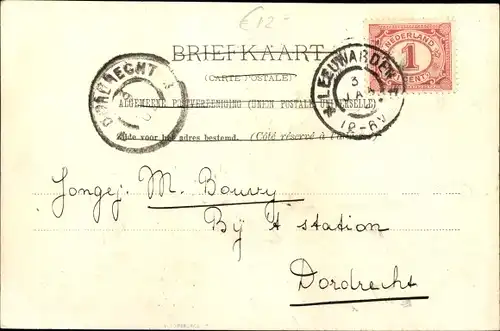 € 12-
BRIEFKAART
(CARTE POSTALE)
ALGEMEENE POSTVEREENIGING (UNION POSTALE UNIVERSELLE)
Zijde voor het adres bestemd. (Côté réservé à l'adresse)
DORDRECHT
LEEUWARDEN
3 JA
12-6V
NEDERLAND
1
CENT
Jongej. M. Bouvy
Bij t station
Dordrecht